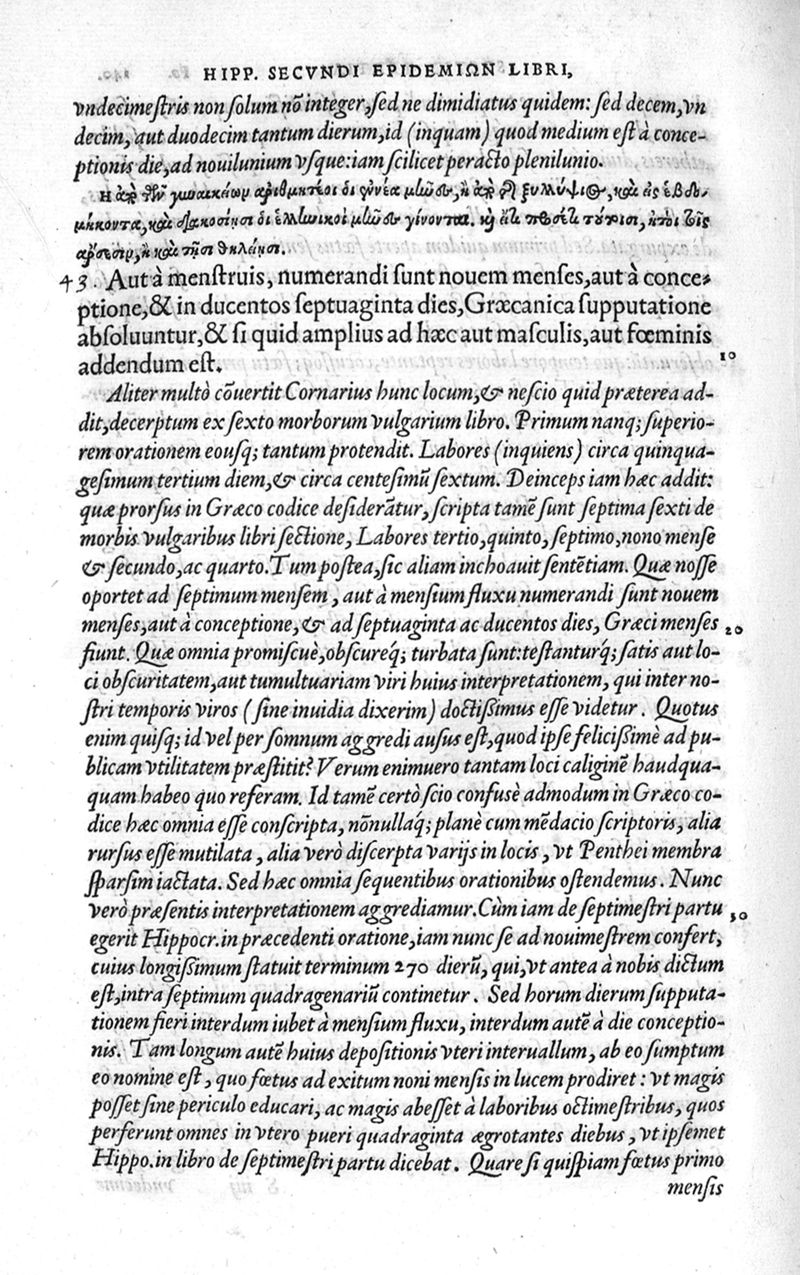 HIPP. SECVNDI EPIDEMIΩN LIBRI,
vndecimestris non solum nõ integer, sed ne dimidiatus quidem: sed decem, vn
decim, aut duodecim tantum dierum, id (inquam) quod medium est à conce-
ptionis die, ad nouilunium vsque: iam scilicet peracto plenilunio.
Ἢ ἀπὸ τῶν γυναικείων ἀριθμητέοι οἱ ἐννέα μῆνες, ἢ ἀπὸ τῆς ξυλλήψιος, καὶ ἐς ἑβδο-
μήκοντα, καὶ διακοσίῃσι οἱ ἑλληνικοὶ μῆνες γίνονται. καὶ ἔτι
43. Aut à menstruis, numerandi sunt nouem menses, aut à conce-
ptione, & in ducentos septuaginta dies, Græcanica supputatione
absoluuntur, & si quid amplius ad hæc aut masculis, aut fœminis
addendum est. 10
Aliter multò cõuertit Cornarius hunc locum, & nescio quid præterea ad-
dit, decerptum ex sexto morborum vulgarium libro. Primum nanq; superio-
rem orationem eousq; tantum protendit. Labores (inquiens) circa quinqua-
gesimum tertium diem, & circa centesimũ sextum. Deinceps iam hæc addit:
quæ prorsus in Græco codice desiderãtur, scripta tamẽ sunt septima sexti de
morbis vulgaribus libri sectione, Labores tertio, quinto, septimo, nono mense
& secundo, ac quarto. Tum postea, sic aliam inchoauit sentẽtiam. Quæ nosse
oportet ad septimum mensem, aut à mensium fluxu numerandi sunt nouem
menses, aut à conceptione, & ad septuaginta ac ducentos dies, Græci menses 20
fiunt. Quæ omnia promiscuè, obscureq; turbata sunt: testanturq́; satis aut lo-
ci obscuritatem, aut tumultuariam viri huius interpretationem, qui inter no-
stri temporis viros (sine inuidia dixerim) doctißimus esse videtur. Quotus
enim quisq; id vel per somnum aggredi ausus est, quod ipse felicißimè ad pu-
blicam vtilitatem præstitit? Verum enimuero tantam loci caliginẽ haudqua-
quam habeo quo referam. Id tamẽ certò scio confusè admodum in Græco co-
dice hæc omnia esse conscripta, nõnullaq́; planè cum mẽdacio scriptoris, alia
rursus esse mutilata, alia verò discerpta varijs in locis, vt Penthei membra
sparsim iactata. Sed hæc omnia sequentibus orationibus ostendemus. Nunc
verò præsentis interpretationem aggrediamur. Cùm iam de septimestri partu 30
egerit Hippocr. in præcedenti oratione, iam nunc se ad nouimestrem confert,
cuius longißimum statuit terminum 270 dierũ, qui, vt antea à nobis dictum
est, intra septimum quadragenariũ continetur. Sed horum dierum supputa-
tionem fieri interdum iubet à mensium fluxu, interdum autẽ à die conceptio-
nis. Tam longum autẽ huius depositionis vteri interuallum, ab eo sumptum
eo nomine est, quo fœtus ad exitum noni mensis in lucem prodiret: vt magis
posset sine periculo educari, ac magis abesset à laboribus octimestribus, quos
perferunt omnes in vtero pueri quadraginta ægrotantes diebus, vt ipsemet
Hippo. in libro de septimestri partu dicebat. Quare si quispiam fœtus primo
mensis